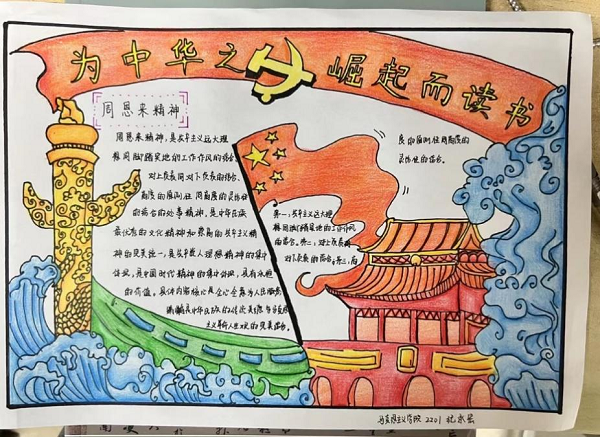 为中华之崛起而读书
周恩来精神
周恩来精神,是共产主义远大理
想同脚踏实地的工作作风的结合
对上负责同对下负责的结合,
高度的原则性同高度的灵活性
的结合的处事精神,是中华民族
最优秀的文化精神和崇高的共产主义精
神的完美统一,是共产党人理想精神的集中
体现,是中国时代精神的集中体现,具有永恒
的价值。具体内容核心是全心全意为人民服务
主义革命人生观的完美结合。
第一,共产主义远大理
想同脚踏实地的工作作风
的结合。第二,对上负责同
对下负责的结合。第三,高
度的原则性同高度的
灵活性的结合。
马克思主义学院 2201